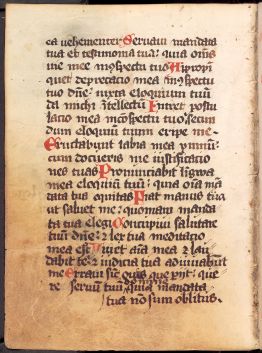 ea vehementer Servavi mandata
tua et testimonia tua: quia om̄s
vie mee in ↄspectu tuo Appropi
quet deprecacio mea in ↄspectu
tuo dn̄e: iuxta eloquium tuū
da michi ītellectū Intret postu
lacio mea in ↄspectu tuo: secun
dum eloquiū tuum eripe me
Eructabunt labia mea ymnū:
cum docueris me iustificatio
nes tuas Pronunciabit lingwa
mea eloquiū tuū: quia oīa mā
data tua equitas Fiat manus tua
ut salvet me: quoniam manda
ta tua elegi Concupivi salutare
tuū dn̄e: et lex tua meditacio
mea est Vivet aīa mea et lau
dabit te: et iudicia tua adiuvabūt
me Erravi sic̄ ovis que piit: que
re servū tuū domine quia mandata
tua nō sum oblitus.